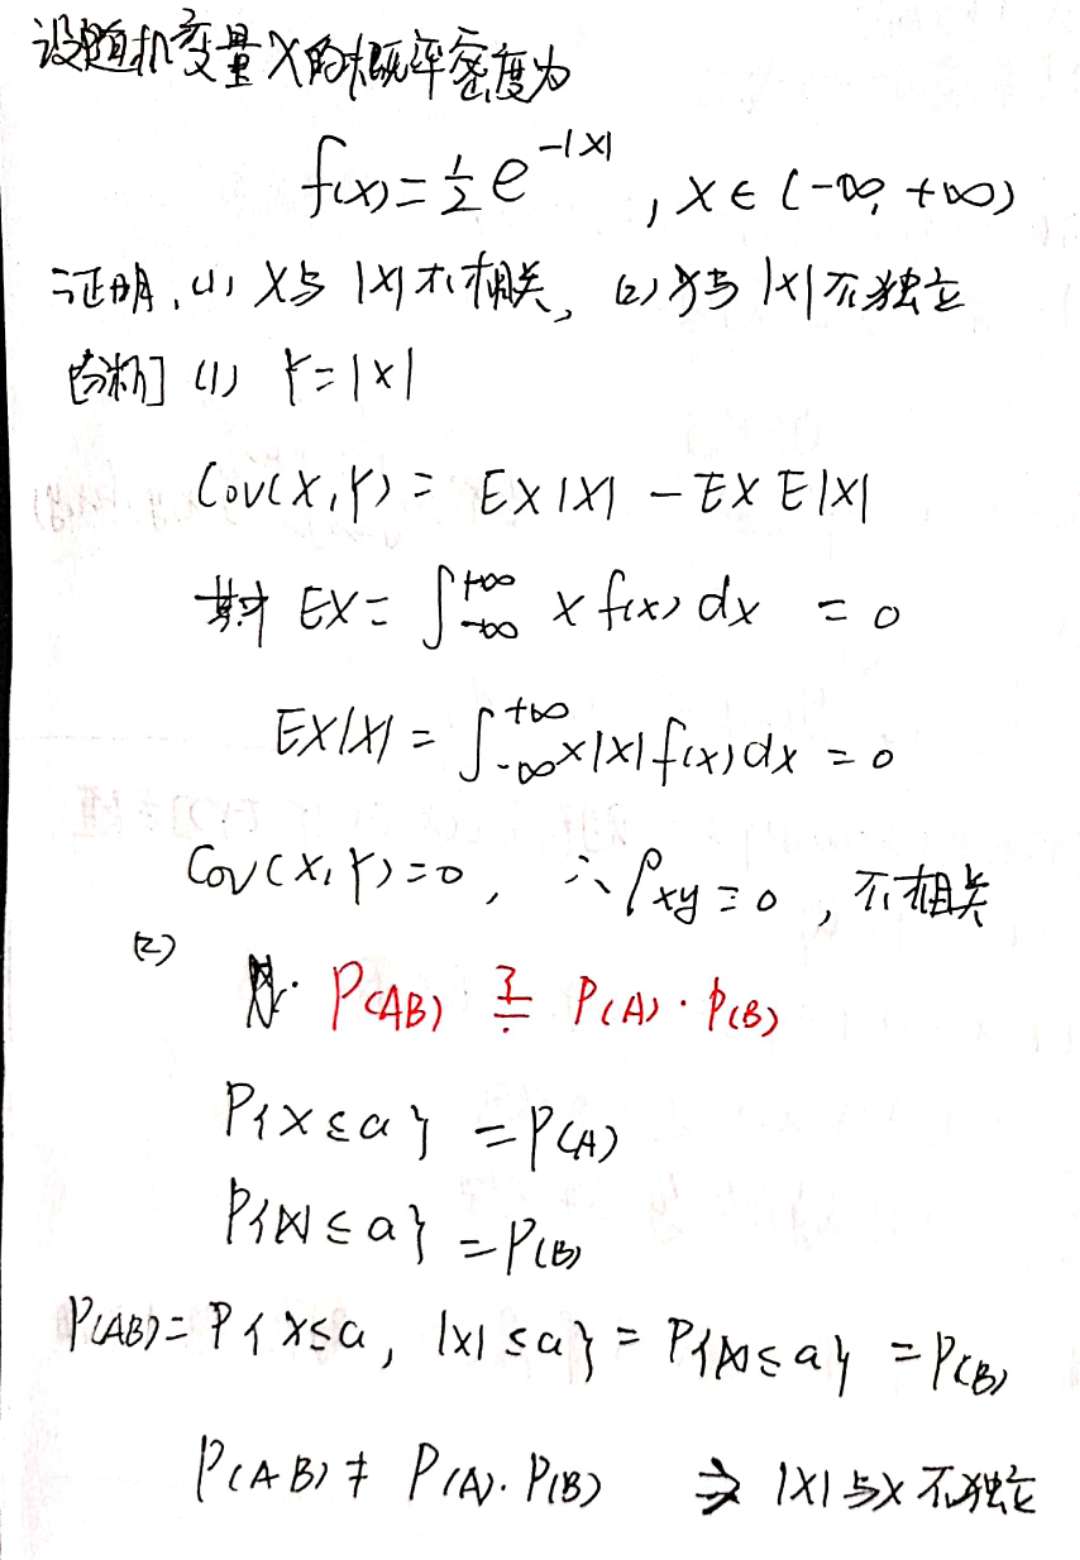 设随机变量X的概率密度为
f(x)=½e^{-|x|}, x∈(-∞,+∞)
证明,(1) X与|X|不相关, (2) X与|X|不独立
[分析] (1) Y=|X|
Cov(X,Y)= EX|X| - EX E|X|
其中 EX= ∫_{-∞}^{+∞} x f(x) dx = 0
EX|X| = ∫_{-∞}^{+∞} x|x| f(x) dx = 0
Cov(X,Y)=0, ∴ρxy=0, 不相关
(2) P(AB) ≟ P(A)·P(B)
P{X≤a} =P(A)
P{|X|≤a} =P(B)
P(AB)= P{X≤a, |X|≤a} = P{|X|≤a} =P(B)
P(AB)≠ P(A)·P(B) ⇒ |X|与X不独立